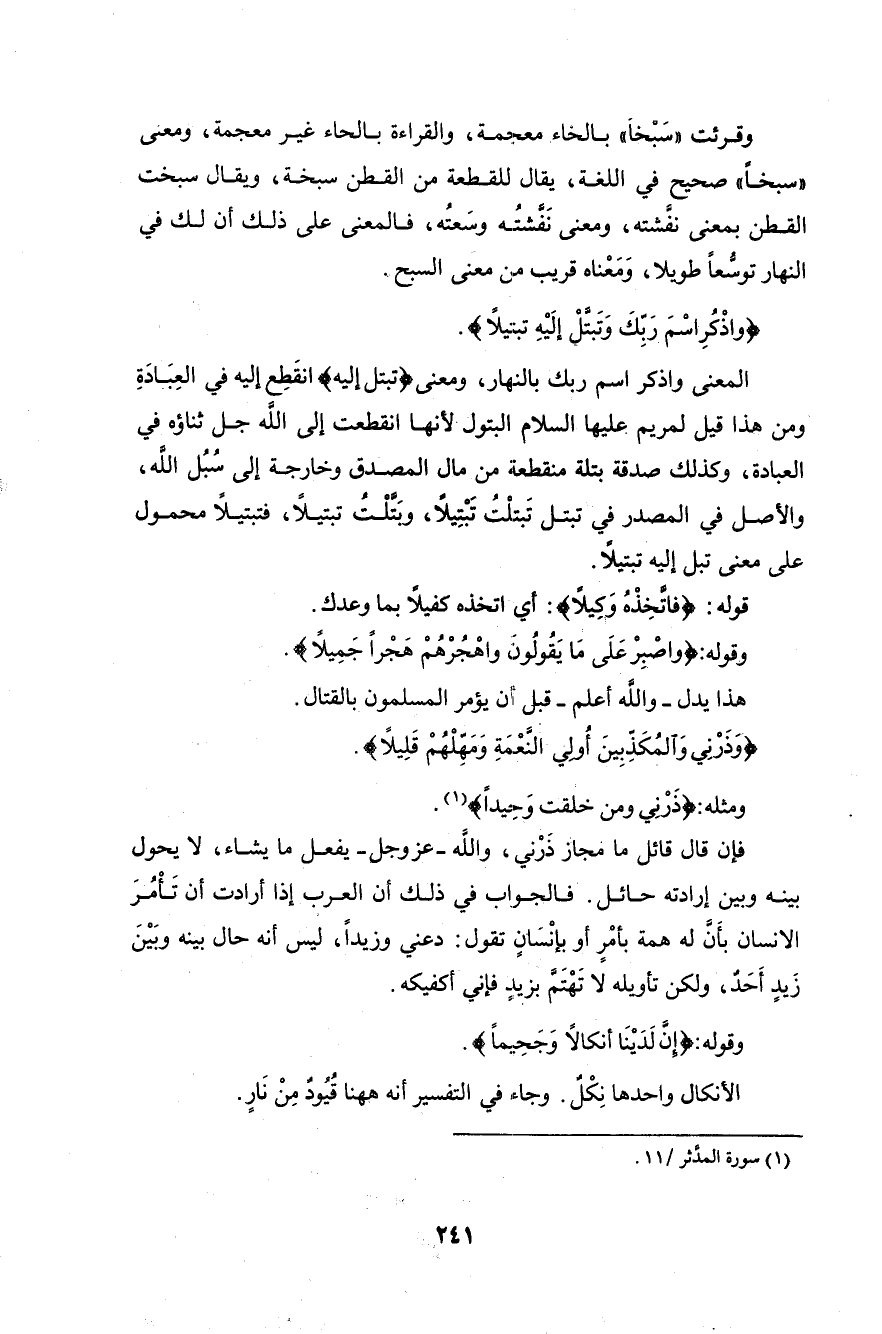 وقرئت «سَبْخاً» بالخاء معجمة، والقراءة بالحاء غير معجمة، ومعنى
«سبخاً» صحيح في اللغة، يقال للقطعة من القطن سبخة، ويقال سبخت
القطن بمعنى نفَّشته، ومعنى نَفَّشتُه وسَعتُه، فالمعنى على ذلك أن لك في
النهار توسُّعاً طويلا، وَمَعْناه قريب من معنى السبح.
﴿واذْكُرِ اسْمَ رَبِّكَ وَتَبَتَّلْ إِلَيْهِ تبتيلاً﴾.
المعنى واذكر اسم ربك بالنهار، ومعنى ﴿تبتل إليه﴾ انقَطِع إليه في العِبَادَةِ
ومن هذا قيل لمريم عليها السلام البتول لأنها انقطعت إلى اللَّه جل ثناؤه في
العبادة، وكذلك صدقة بتلة منقطعة من مال المصدق وخارجة إلى سُبُل اللَّه،
والأصل في المصدر في تبتل تَبتلْتُ تَبْتِيلاً، وبَتَّلْتُ تبتيلاً، فتبتيلاً محمول
على معنى تبل إليه تبتيلاً.
قوله: ﴿فاتَّخِذْهُ وَكِيلاً﴾: أي اتخذه كفيلاً بما وعدك.
وقوله: ﴿واصْبِرْ عَلَى مَا يَقُولُونَ واهْجُرْهُمْ هَجْراً جَمِيلاً﴾.
هذا يدل ـ واللَّه أعلم ـ قبل أن يؤمر المسلمون بالقتال.
﴿وَذَرْنِي وَآلمُكَذِّبِينَ أُولِي النَّعْمَةِ وَمَهِّلْهُمْ قَلِيلاً﴾.
ومثله: ﴿ذَرْنِي ومن خلقت وَحِيداً﴾(١).
فإن قال قائل ما مجاز ذَرْني، واللَّه ـ عز وجل ـ يفعل ما يشاء، لا يحول
بينه وبين إرادته حائل. فالجواب في ذلك أن العرب إذا أرادت أن تَأْمُرَ
الانسان بأَنَّ له همة بأمْرٍ أو بإنْسَانٍ تقول: دعني وزيداً، ليس أنه حال بينه وبَيْنَ
زَيدٍ أَحَدٌ، ولكن تأويله لا تَهْتَمَّ بزيدٍ فإني أكفيكه.
وقوله: ﴿إِنَّ لَدَيْنَا أنكالاً وَجَحِيماً﴾.
الأنكال واحدها نِكْلٌ. وجاء في التفسير أنه ههنا قُيُودٌ مِنْ نَارٍ.
(١) سورة المدَّثر /١١.
٢٤١